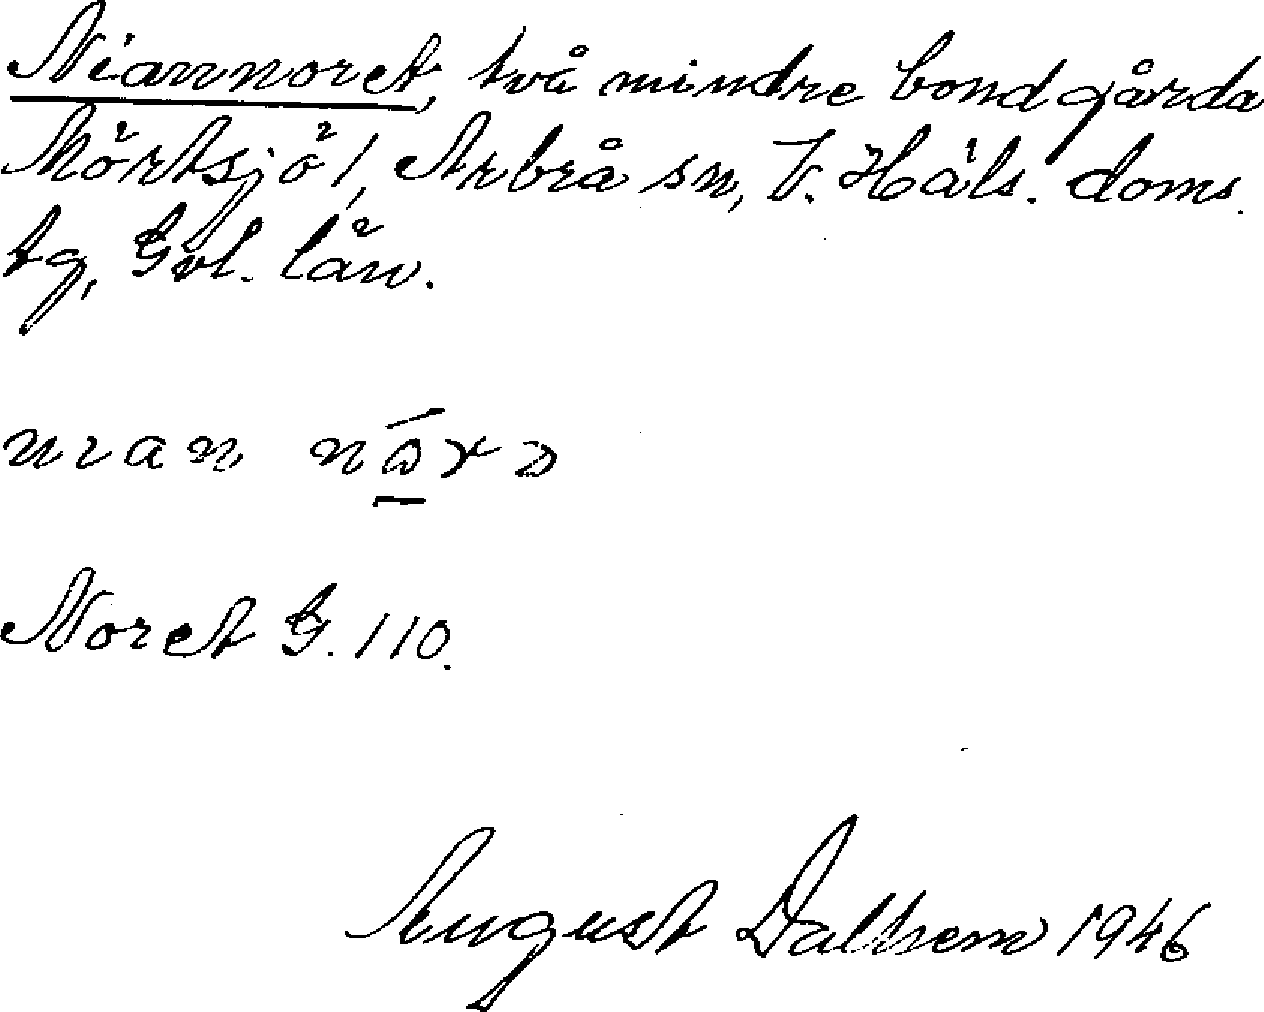 Niannoret, två mindre bondgårda
Mörtsjö 1, Arbrå sn, V. Häls. doms.
tg, Gvl. län.
Noret G. 110.
August Dalhem 1946